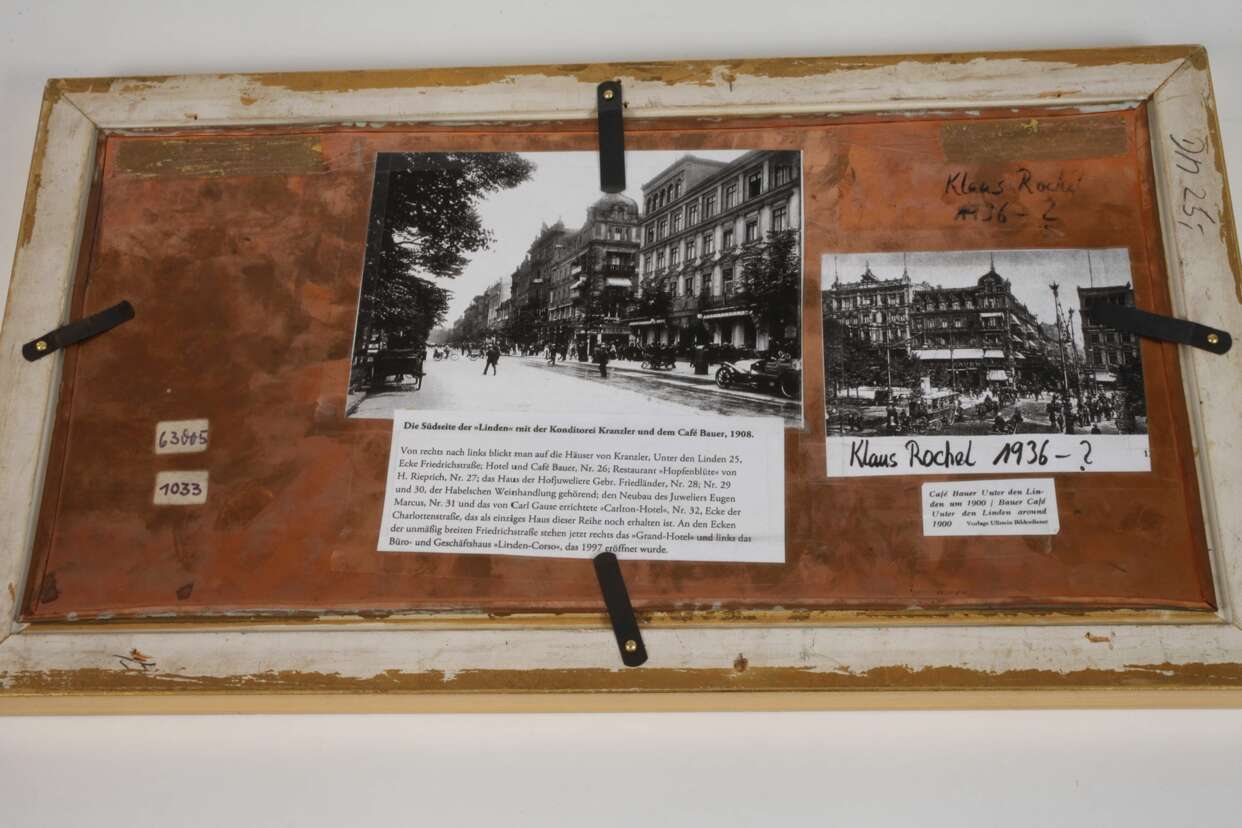 Die Südseite der »Linden« mit der Konditorei Kranzler und dem Café Bauer, 1908.
Von rechts nach links blickt man auf die Häuser von Kranzler, Unter den Linden 25,
Ecke Friedrichstraße; Hotel und Café Bauer, Nr. 26; Restaurant »Hopfenblüte« von
H. Rieprich, Nr. 27; das Haus der Hofjuweliere Gebr. Friedländer, Nr. 28; Nr. 29
und 30, der Habelschen Weinhandlung gehörend; den Neubau des Juweliers Eugen
Marcus, Nr. 31 und das von Carl Gause errichtete »Carlton-Hotel«, Nr. 32, Ecke der
Charlottenstraße, das als einziges Haus dieser Reihe noch erhalten ist. An den Ecken
der unmäßig breiten Friedrichstraße stehen jetzt rechts das »Grand-Hotel« und links das
Büro- und Geschäftshaus »Linden-Corso«, das 1997 eröffnet wurde.
63005
1033
Klaus Rochel
1936 - ?
Klaus Rochel 1936 - ?
Café Bauer Unter den Lin-
den um 1900 / Bauer Café
Unter den Linden around
1900 Vorlage Ullstein Bilderdienst